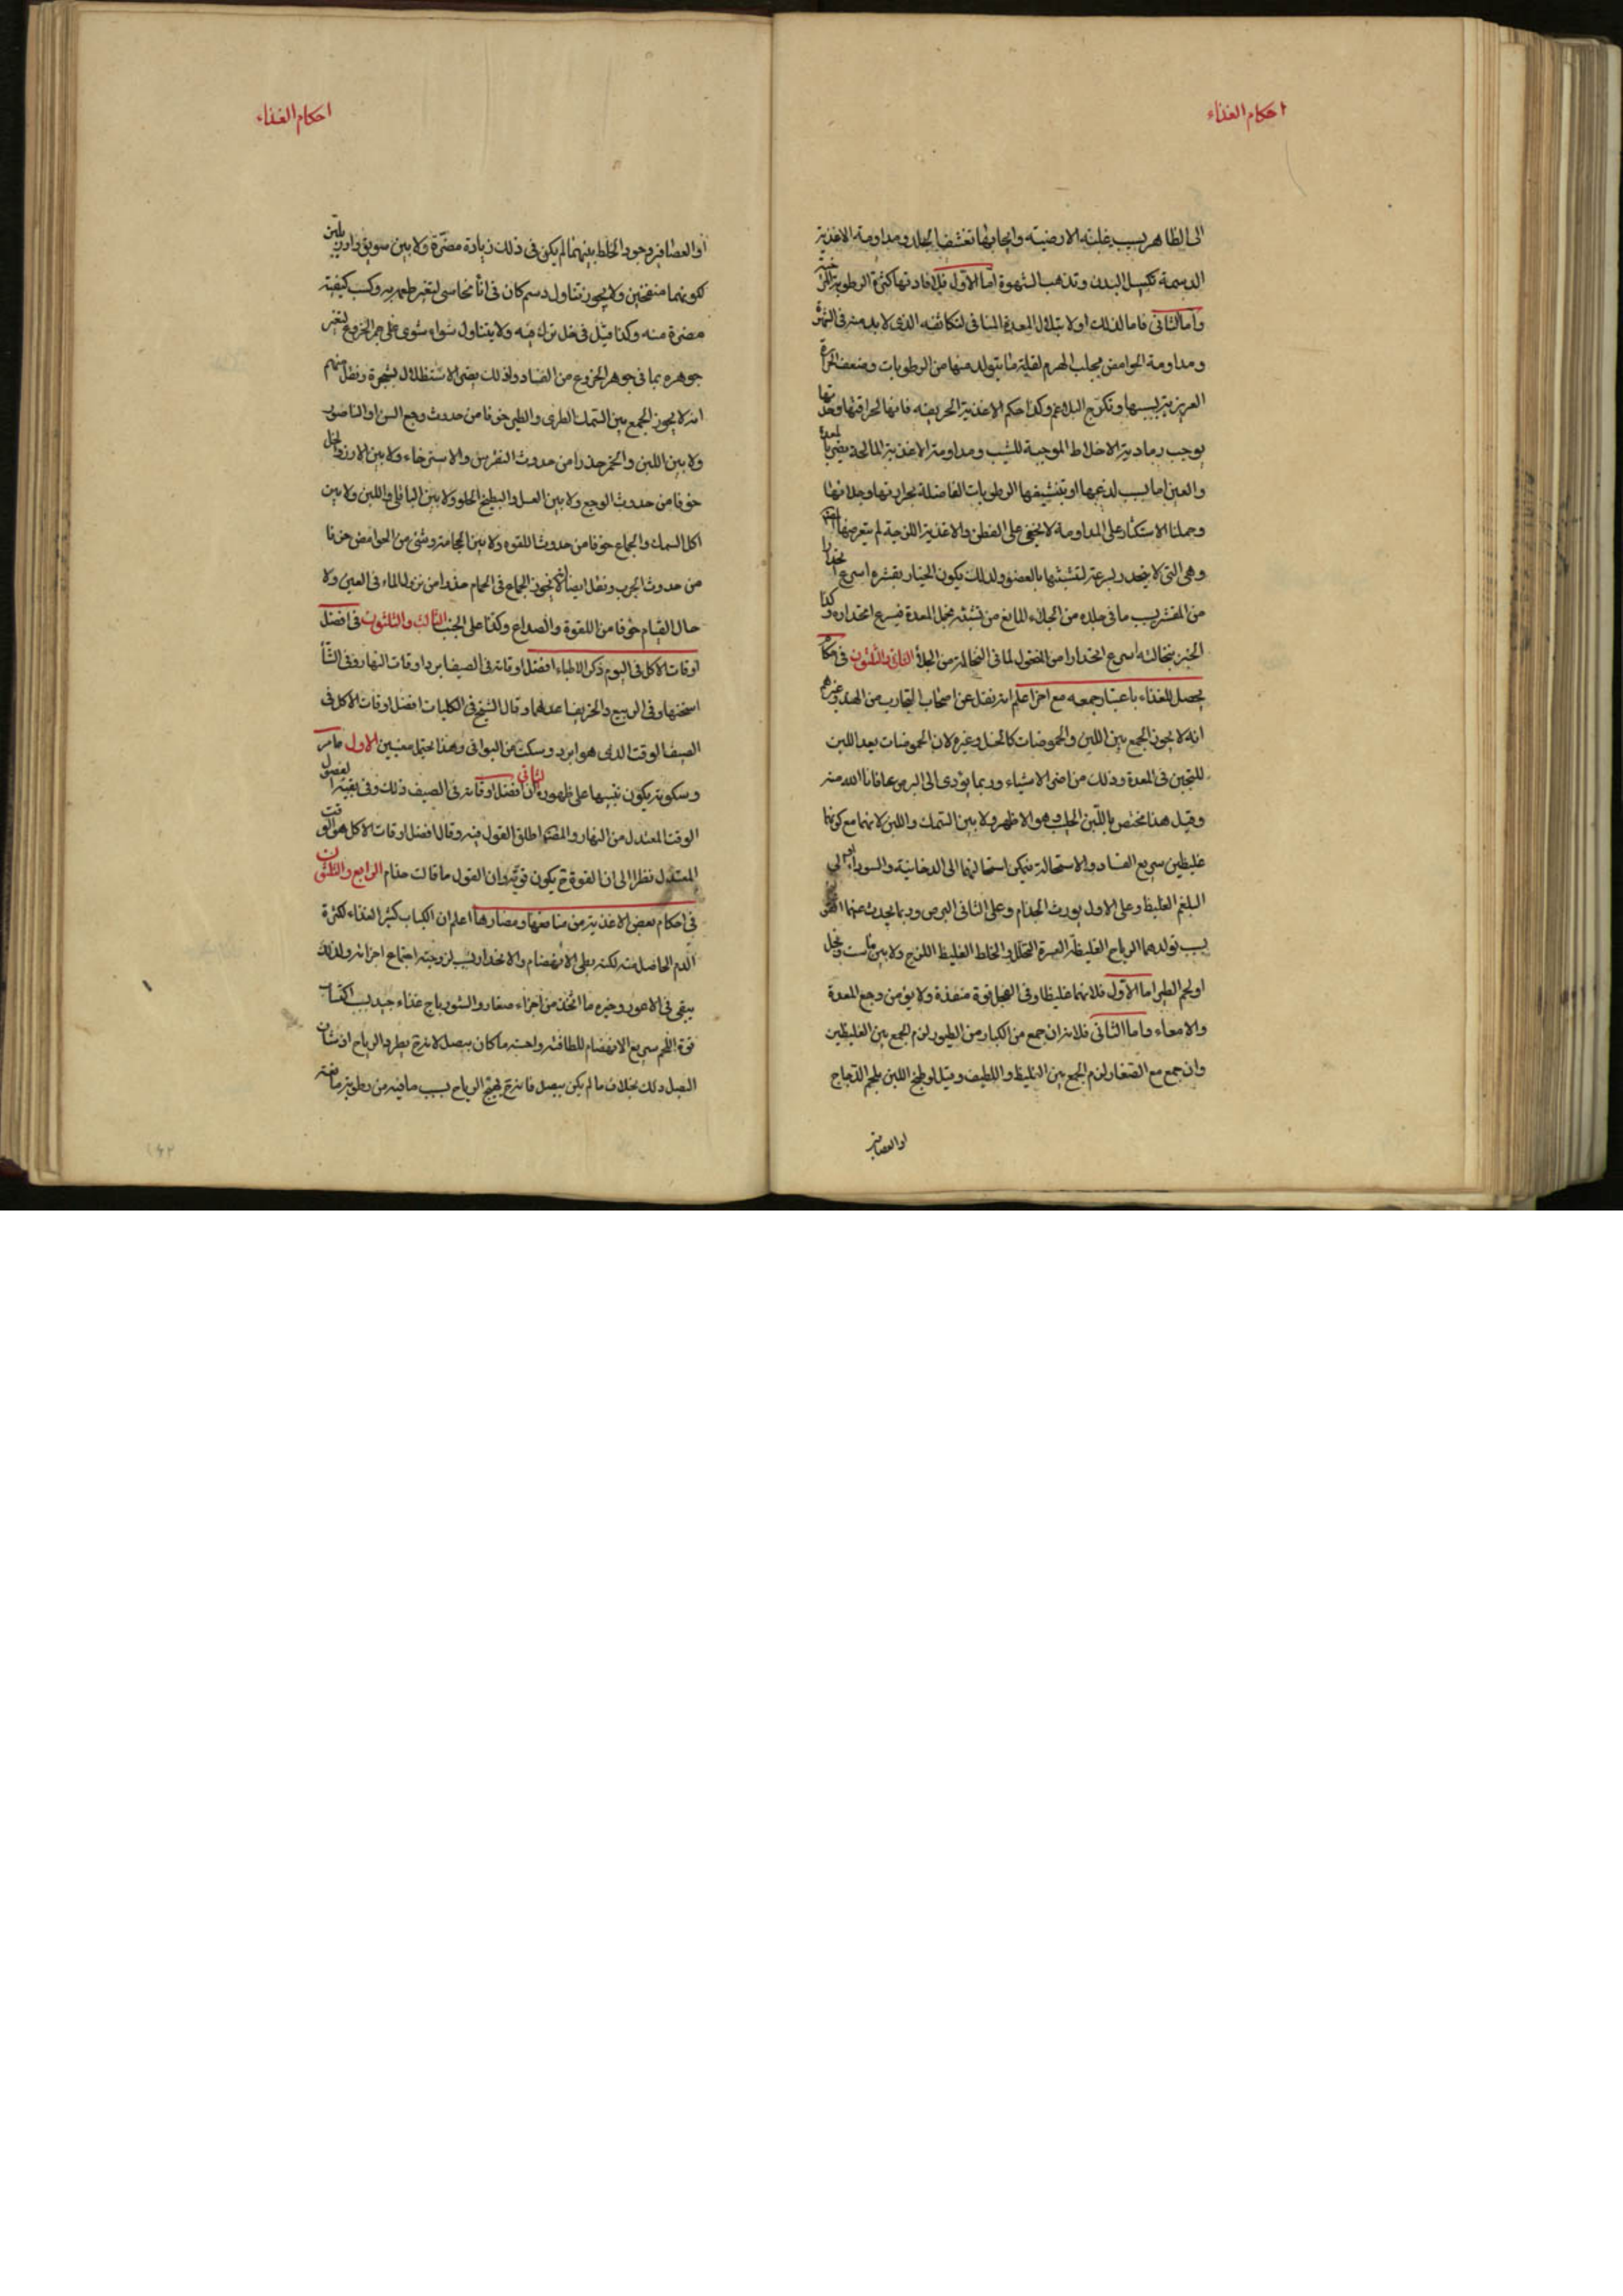 احكام الغذاء
الى الظاهر بسبب غلبته الارضيته وايجابها تقشف الجلد ومداومة الاغذية
الدسمة تكسل البدن وتذهب الشهوة اما الاول فلافادتها كثرة الرطوبة
واما الثانى فاما لذلك او لابتلال المعدة المنافى لتكاثفه الذى لا بد منه فى
ومداومة الحوامض يجلب الهرم لقلة ما يتولد منها من الرطوبات وضعف الحرارة
الغريزية ببسها وكذا حكم الاغذية الحريفه فانها لحرافتها وحدتها
يوجب رمادية الاخلاط الموجبة للشيب ومداومة الاغذية المالحة يضر بالمعدة
والعين اما بسبب لذعها او بتنشيفها الرطوبات الفاضلة بحرارتها وجلائها
وحملنا الاستكثار على المداومة لا يخفى على الفطن والاغذية اللزجة لم يتعرضها
وهى التى لا ينحدر بسرعة لتشبثها بالعضو ولذلك يكون الخيار بقشره اسرع انحدارا
من المقشر بسبب ما فى جلده من الجلاء المانع من تشبثه بخمل المعدة فيسرع انحداره وكذا
الخبز بنخالته اسرع انحدارا من المغسول لما فى النخالة من الجلاء الثانى والثلثون فى احكام
يحصل للغذاء باعتبار جمعه مع اخر اعلم انه نقل عن اصحاب التجارب من الهند وغيرهم
انه لا يجوز الجمع بين اللبن والحموضات كالخل وغيره لان الحموضات يعد اللبن
للتجبن فى المعدة وذلك من اضر الاشياء وربما يؤدى الى البرص عافانا الله منه
وقيل هذا مختص باللبن الحليب وهو الاظهر ولا بين السمك واللبن لانهما مع كونهما
غليظين سريع الفساد والاستحالة فيمكن استحالتهما الى الدخانية والسوداء او الى
البلغم الغليظ وعلى الاول يورث الجذام وعلى الثانى البرص وربما يحدث عنهما
بسبب تولدهما الرياح الغليظة العسرة التحلل والخلط الغليظ اللزج ولا بين ماست وفجل
او لحم الطير اما الاول فلانهما غليظا وفى الفجل قوة منفذة ولا يؤمن وجع المعدة
والامعاء واما الثانى فلانه ان جمع من الكبار من الطيور لزم الجمع بين الغليظين
وان جمع مع الصغار لزم الجمع بين الغليظ واللطيف وقيل لو طبخ اللبن بلحم الدجاج
او العصافير
احكام الغذاء
او العصافير وجود الخلط بينهما لم يكن فى ذلك زيادة مضرة ولا بين سويق وارز بلبن
لكونهما منفختين ولا يجوز تناول دسم كان فى اناء نحاسى لتغير طعمه به وكسب كيفية
مضرة منه وكذا قيل فى خل ترك فيه ولا يتناول شواء شوى على جمر الخروع لتغير
جوهره بما فى جوهر الخروع من الفساد ولذلك يضر الاستظلال بشجرة ونقل منهم
انه لا يجوز الجمع بين السمك الطرى والطير خوفا من حدوث وجع السن او الناصور
ولا بين اللبن والخمر حذرا من حدوث النقرس والاسترخاء ولا بين الارز والخل
خوفا من حدوث الوجع ولا بين العسل والبطيخ الحلو ولا بين الباقلى واللبن ولا بين
اكل السمك والجماع خوفا من حدوث اللقوه ولا بين الحجامة وشئ من الحوامض خوفا
من حدوث الجرب ونقل ايضا لا يجوز الجماع فى الحمام حذرا من نزول الماء فى العين ولا
حال القيام خوفا من اللقوة والصداع وكذا على الجنب الثالث والثلثون فى افضل
اوقات الاكل فى اليوم ذكر الاطباء افضل اوقاته فى الصيف ابرد اوقات النهار وفى الشتاء
اسخنها وفى الربيع والخريف اعدلهما وقال الشيخ فى الكليات افضل اوقات الاكل فى
الصيف الوقت الذى هو ابرد وسكت عن البواقى وهذا يحتمل معنيين الاول ما مر
وسكوته يكون تنبيها على ظهوره الثانى ان افضل اوقاته فى الصيف ذلك وفى بقية الفصول
الوقت المعتدل من النهار والمصنف اطلق القول فيه وقال افضل اوقات الاكل هو الوقت
المعتدل نظرا الى ان القوة ح يكون قوية وان القول ما قالت حذام الرابع والثلثون
فى احكام بعض الاغذية من منافعها ومضارها اعلم ان الكباب كثير الغذاء لكثرة
الدم الحاصل منه لكنه بطى الانهضام والانحدار بسبب لزوجته اجتماع اجزائه ولذلك
يبقى فى الاعور وخيره ما اتخذ من اجزاء صغار والشورباج غذاء جيد بسبب اكتساب
قوة اللحم سريع الانهضام للطافته واحسنه ما كان ببصل لانه ح يطرد الرياح اذ شان
البصل ذلك بخلاف ما لم يكن ببصل فانه ح يهيج الرياح بسبب ما فيه من رطوبة